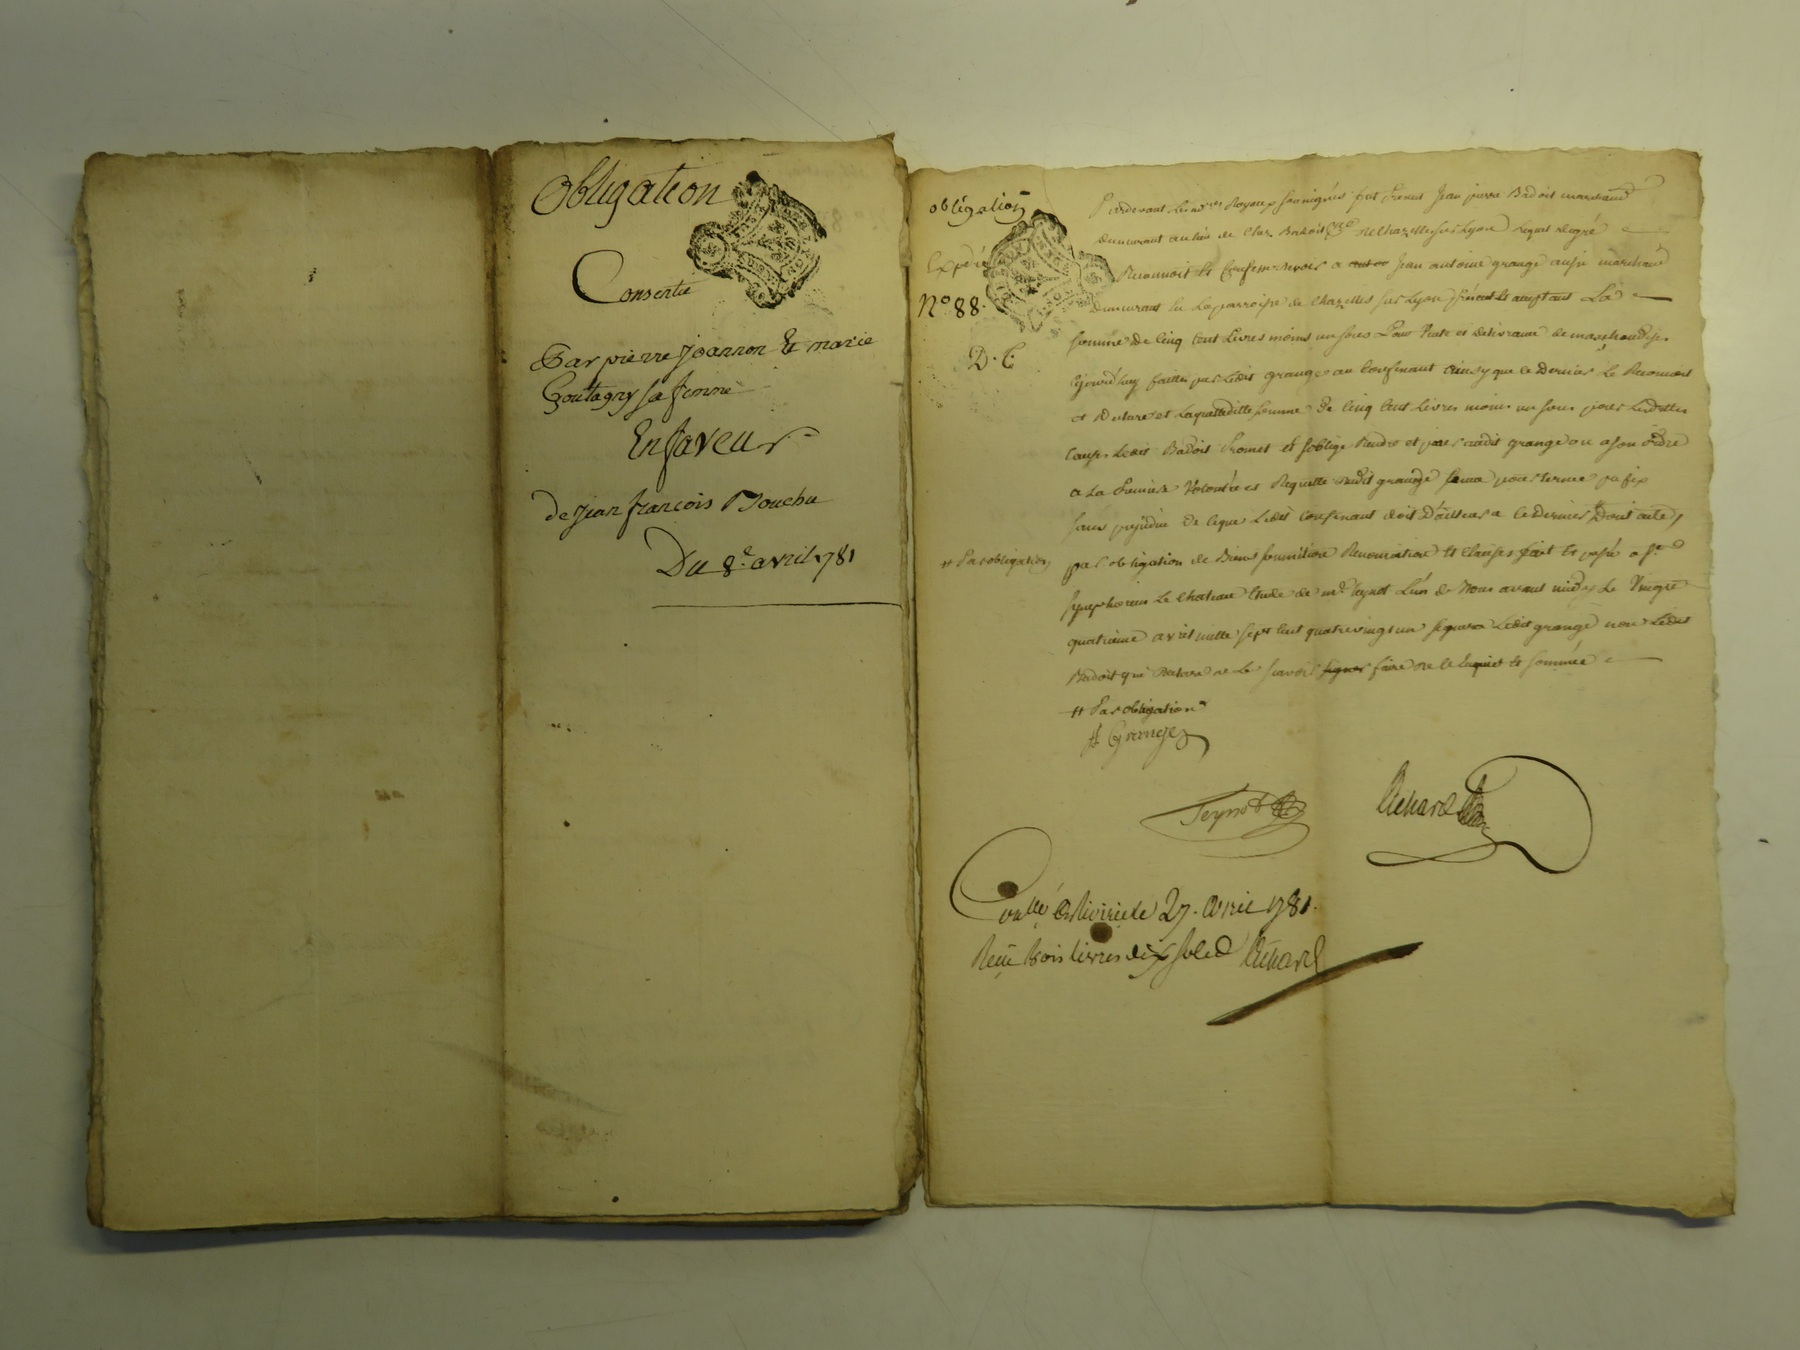 Obligation
Consentie
Par pierre Joannon Et marie
Goutagny sa femme
En faveur
de jean françois Bouchu
Du 8.e avril 1781
obligation
Expédié
N.o 88.
D. C.
Pardevant les no.res Royaux soussignés fut present Jean pierre Badoit marchand
demeurant au lieu de chez Badoit de Chazelles sur Lyon lequel de gré
Reconnoit Et Confesse devoir a Jean antoine grange aussi marchand
demeurant en La parroisse de Chazelles sur Lyon présent Et acceptant La
somme de Cinq cent Livres moins un sous Pour Vente et délivrance de marchandises
Cejourd'huy faitte par Ledit grange au Confessant ainsy que ce dernier Le Reconnoit
et declare et Laquelleditte somme De Cinq cent Livres moins un sous pour Lesdittes
Causes Ledit Badoit Promet Et s'oblige Rendre et payer audit grange ou a son ordre
a La Premiere Volonté et Requette dudit grange pour terme prefix
sans prejudice De ce que Ledit Confessant doit D'ailleurs a ce Dernier Dont acte,
par obligation de Biens soumission Renonciation Et Clauses fait Et passé a S.t
# Par obligation,
Symphorien Le Chateau Etude de m.e teynot L'un de Nous avant midy Le Vingt
quatrieme avril mille sept cent quatrevingt un signera Ledit grange non Ledit
Badoit qui a declaré ne Le scavoir faire de ce Enquis Et sommée
# Par obligation
Grange
Teynot
Richard
Con.llé a St Simphorien le 27. avril 1781.
Reçu trois livres dix sols Richard